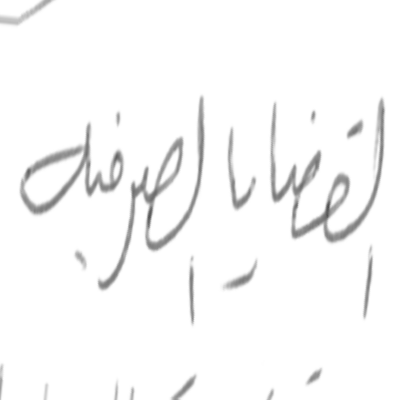 القضايا الصرفية